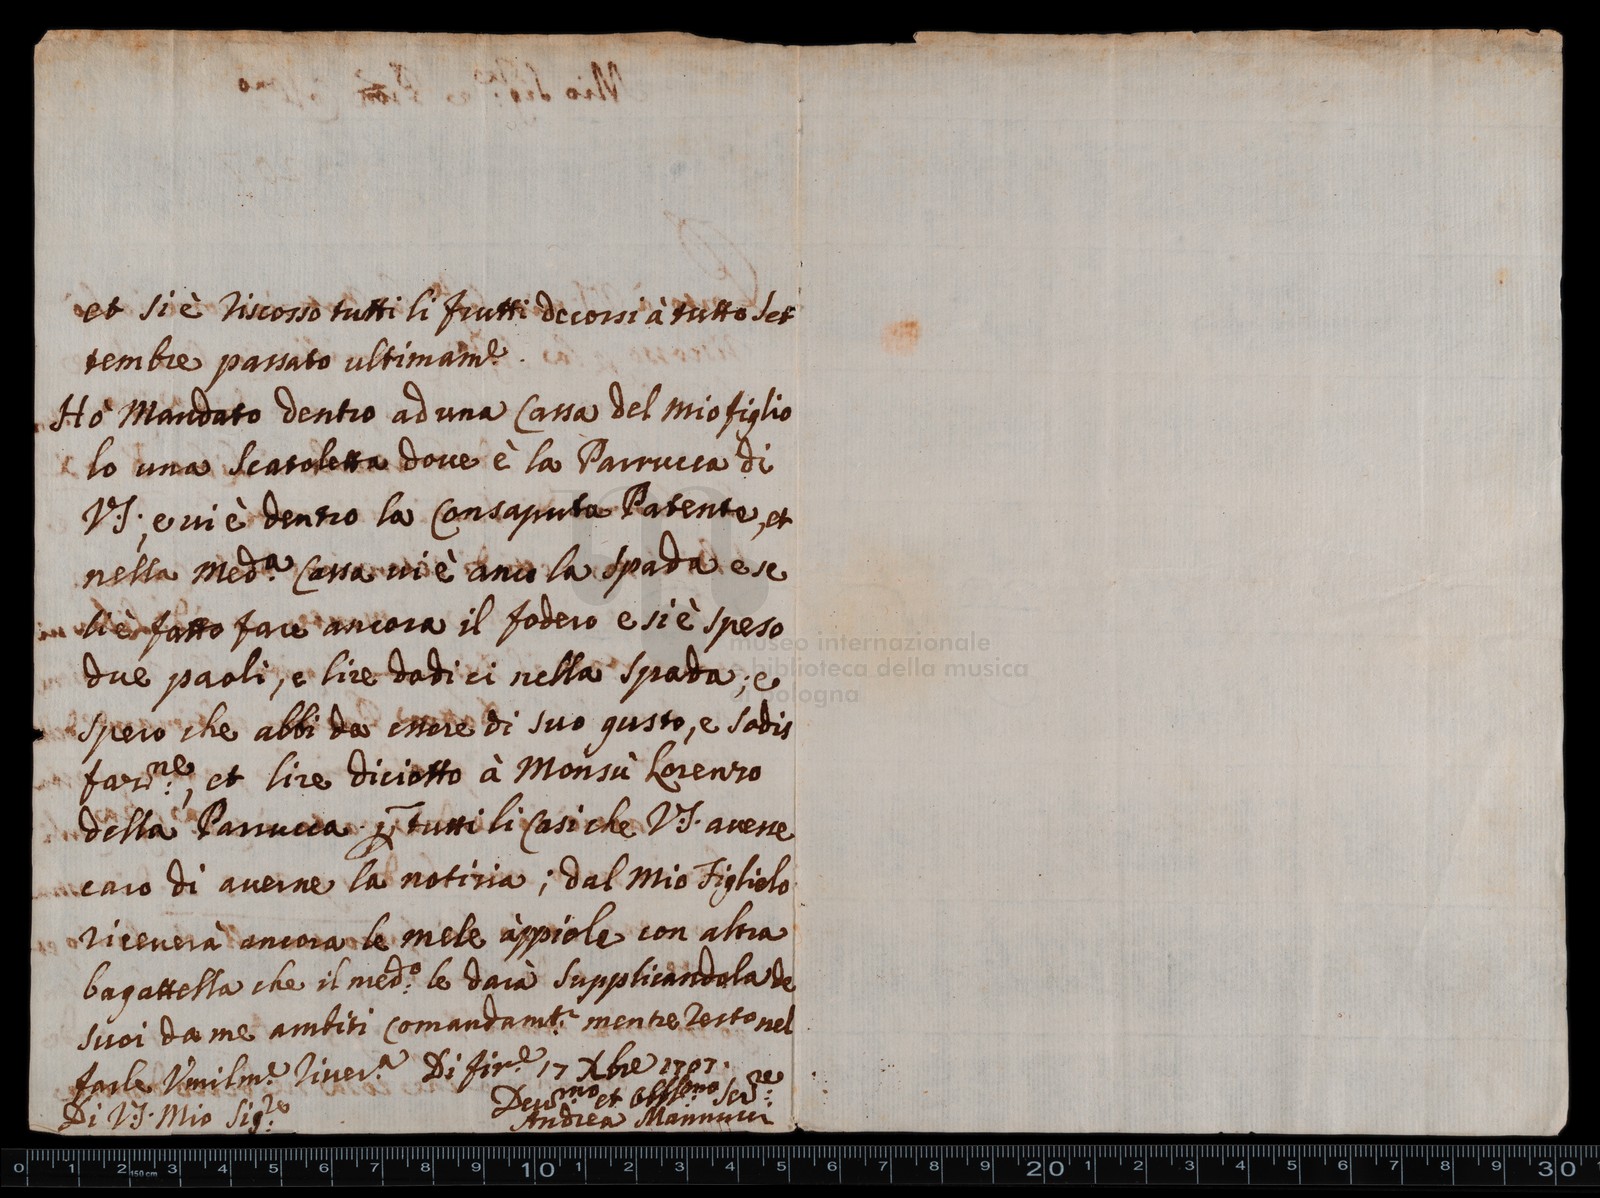 et si è riscosso tutti li frutti decorsi à tutto Set
tembre passato ultimam.e
Hò Mandato dentro ad una Cassa del mio figlio
lo una Scatoletta doue è la Parrucca di
V.S., e ui è dentro la Consaputa Patente, et
nella med.a Cassa ui è anco la Spada e se
li è fatto fare ancora il fodero e si è speso
due paoli, e lire dodici nella Spada; e
spero che abbi da essere di suo gusto, e sodis
faz.ne, et lire diciotto à Monsù Lorenzo
della Parrucca tutti li Casi che V.S. auesse
caro di auerne la notizia; dal Mio Figliolo
riceuerà ancora le mele àppiole con altra
bagattella che il med.o le darà supplicandola de
suoi da me ambiti Comandam.ti mentre resto nel
farle Vmilm.e riuer.a Di fir.e 17 Xbre 1707.
Di V.S. Mio Sig.re
Deuo.mo et Obblmo Ser.re
Andrea Mannucci
museo internazionale
e biblioteca della musica
di bologna